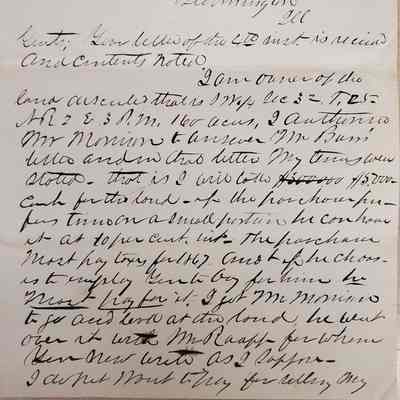 Bloomington
Ill
Gents; Your letter of the 4th inst. is received
and contents noted
I am owner of the
land described that is SW/4 Sec 32 T. 25
N R 2 E 3 P.M. 160 acres, I authorized
Mr Morrison to answer Mr
letter and in that letter My terms were
Stated - that is I will take $5,000-
Cash for the land - if the purchaser pre-
fers time on a small portion he can have
it at 10 per cent. int - The purchaser
Must pay taxes for 1867 And if he choos-
es to employ You to buy for him he
Must pay for it, I got Mr Morrison
to go and look at the land he went
over it with Mr Raapp for whom
You now write as I suppose -
I do not Want to pay for selling My